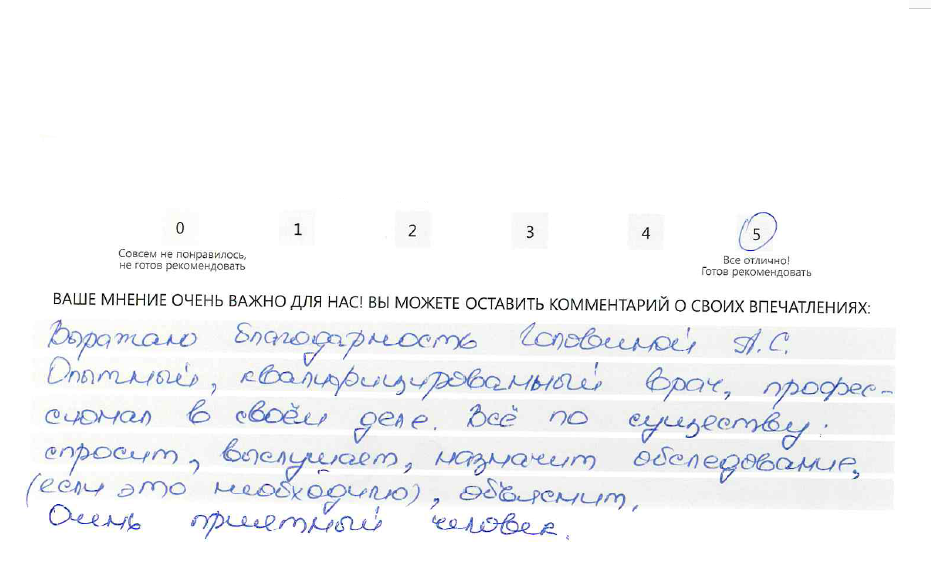 0 1 2 3 4 5
Совсем не понравилось, Все отлично!
не готов рекомендовать Готов рекомендовать
ВАШЕ МНЕНИЕ ОЧЕНЬ ВАЖНО ДЛЯ НАС! ВЫ МОЖЕТЕ ОСТАВИТЬ КОММЕНТАРИЙ О СВОИХ ВПЕЧАТЛЕНИЯХ:
Выражаю благодарность Головиной А.С.
Опытный, квалифицированный врач, профес-
сионал в своём деле. Всё по существу:
спросит, выслушает, назначит обследование,
(если это необходимо), объяснит.
Очень приятный человек.